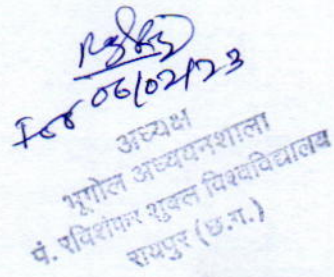 For 06/02/23
अध्यक्ष
भूगोल अध्ययनशाला
पं. रविशंकर शुक्ल विश्वविद्यालय
रायपुर (छ.ग.)